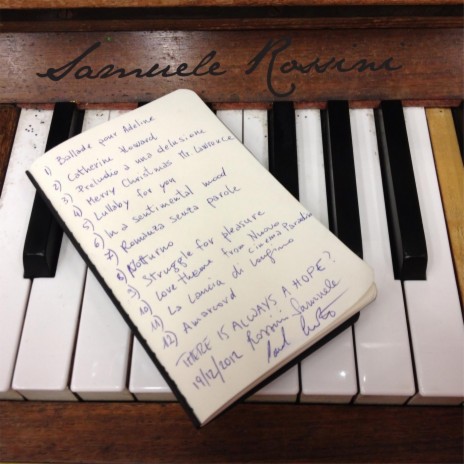 Samuele Rossini
1) Ballade pour Adeline
2) Catherine Howard
3) Preludio a una delusione
4) Merry Christmas Mr Lawrence
5) Lullaby for you
6) In a sentimental mood
7) Romanza senza parole
8) Notturno
9) Struggle for pleasure
10) Love theme from Nuovo Cinema Paradiso
11) La Lancia di Longino
12) Amarcord
THERE IS ALWAYS A HOPE?
19/12/2012 Rossini Samuele